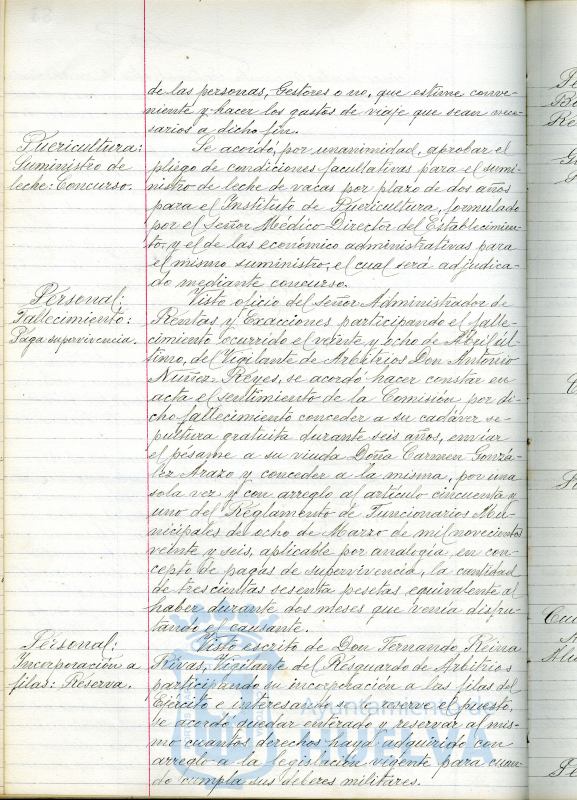 de las personas, Gestores o no, que estime conve-
niente y hacer los gastos de viaje que sean nece-
sarios a dicho fin.
Puericultura:
Suministro de
leche: Concurso.
Se acordó, por unanimidad, aprobar el
pliego de condiciones facultativas para el sumi-
nistro de leche de vacas por plazo de dos años
para el Instituto de Puericultura, formulado
por el Señor Médico Director del Establecimien-
to, y el de las económico administrativas para
el mismo suministro, el cual será adjudica-
do mediante concurso.
Personal:
Fallecimiento:
Paga supervivencia.
Visto oficio del Señor Administrador de
Rentas y Exacciones participando el falle-
cimiento ocurrido el veinte y ocho de Abril úl-
timo, del Vigilante de Arbitrios Don Antonio
Nuñez Reyes, se acordó hacer constar en
acta el sentimiento de la Comisión por di-
cho fallecimiento conceder a su cadáver se-
pultura gratuita durante seis años, enviar
el pésame a su viuda Doña Carmen Gonzá-
lez Arazo y conceder a la misma, por una
sola vez y con arreglo al artículo cincuenta y
uno del Reglamento de Funcionarios Mu-
nicipales de ocho de Marzo de mil novecientos
veinte y seis, aplicable por analogía, en con-
cepto de pagas de supervivencia, la cantidad
de trescientas sesenta pesetas equivalente al
haber durante dos meses que venia disfru-
tando el causante.
Personal:
Incorporación a
filas: Reserva.
Visto escrito de Don Fernando Reina
Rivas, Vigilante del Resguardo de Arbitrios
participando su incorporación a las filas del
Ejército e interesando se le reserve el puesto,
se acordó quedar enterado y reservar al mis-
mo cuantos derechos haya adquirido con
arreglo a la legislación vigente para cuan-
do cumpla sus deberes militares.
Ayuntamiento de
HUELVA